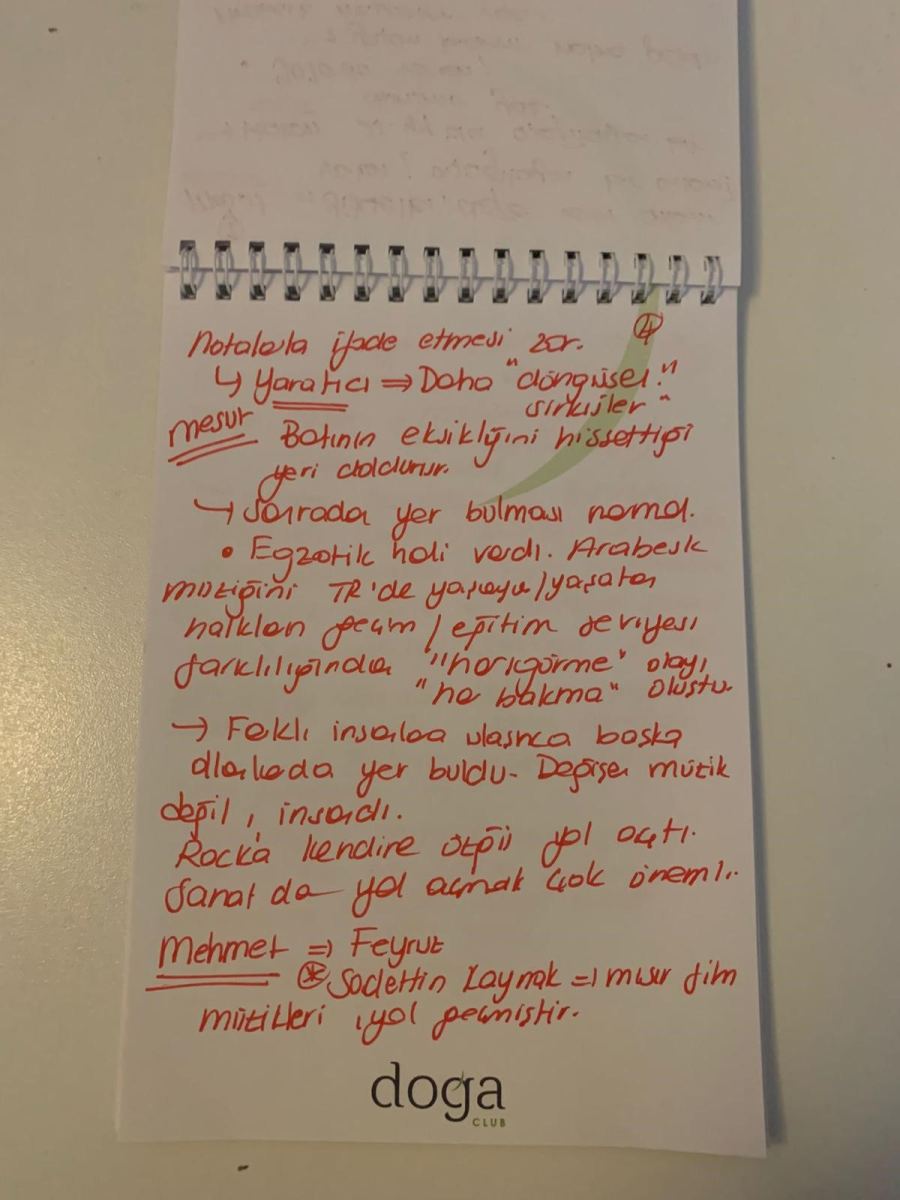 ④
Notalarla ifade etmesi zor.
↳ Yaratıcı ⇒ Daha "döngüsel."
sirküler"
Mesur Batının eksikliğini hissettiği
yeri doldurur.
↪ Sonrada yer bulması normal.
• Egzotik hali vardı. Arabesk
müziğini TR'de yaşayan/yaşatan
halkları geçim / eğitim seviyesi
farklılığından "horgörme" olayı
"hor bakma" oluştu.
→ Farklı insanlara ulaşınca başka
da yer buldu. Değişen müzik
değil, insandı.
Rock'a kendine özgü yol açtı.
Sanat da yol açmak çok önemli.
Mehmet ⇒ Feyruz
⊛ Sadettin Kaynak ⇒ mısır film
müzikleri yol geçmiştir.
doğa
CLUB